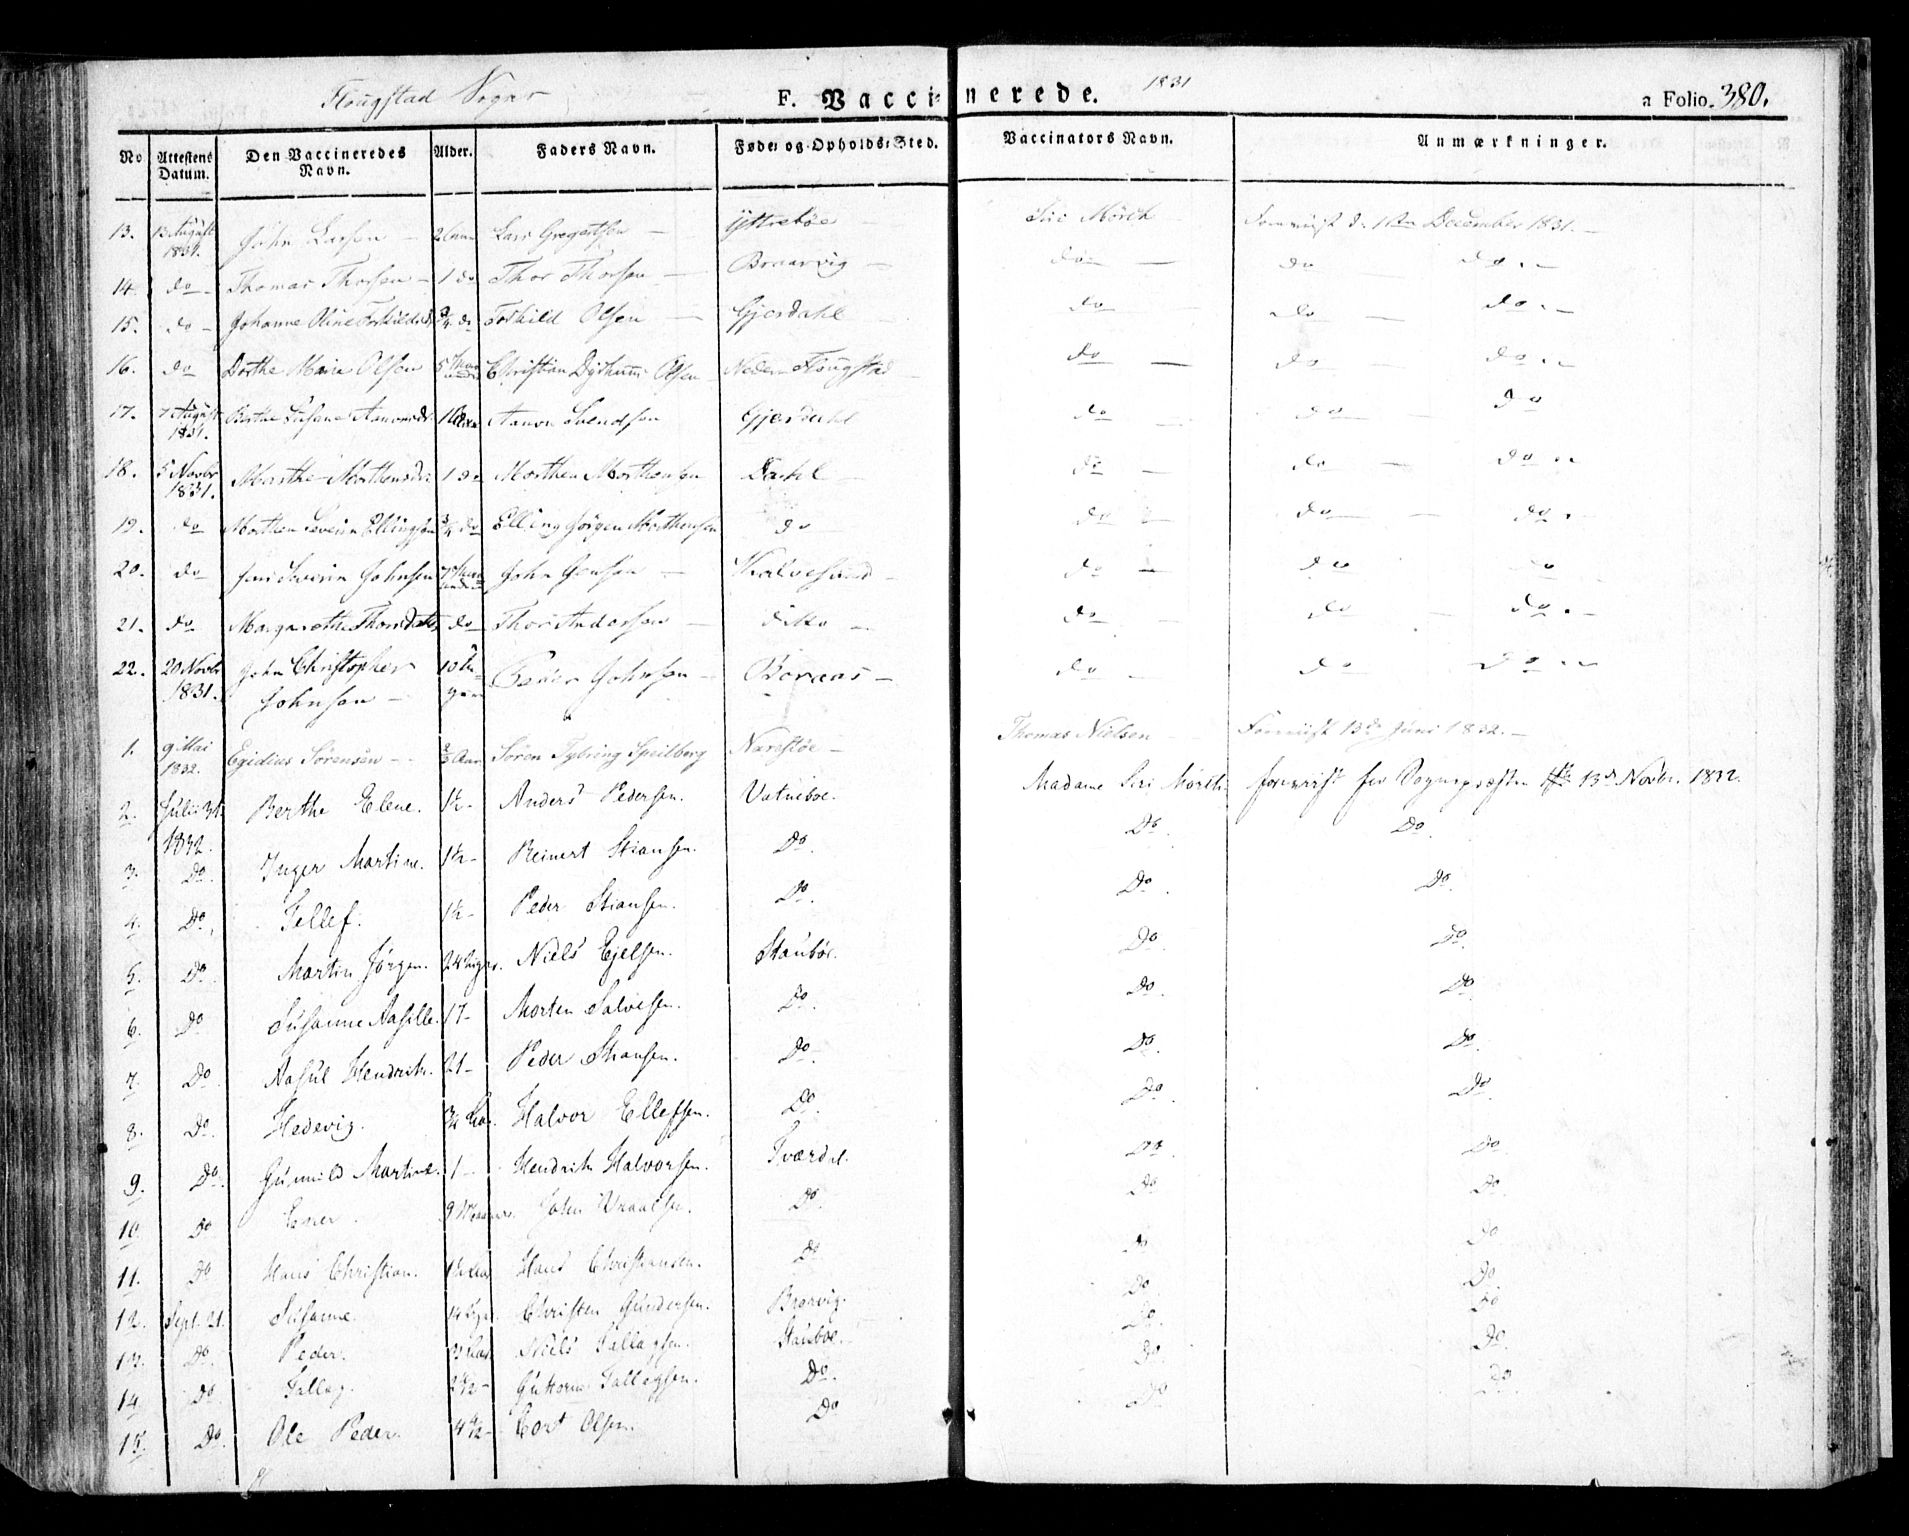 Flougstad Sogn
F. Vaccinerede. 1831
a Folio 380.
No | Attestens Datum. | Den Vaccineredes Navn. | Alder. | Faders Navn. | Føde- og Opholds-Sted. | Vaccinators Navn. | Anmærkninger.
13. | 13 August 1831. | John Larsen | 2 Aar | Lars Gregertsen | Yttrebøe | Siri Mörch | Foreviist d. 11te December 1831.
14. | do | Thomas Thorsen | 1 do | Thor Thorsen | Braarvig | do | do do
15. | do | Johanne Oline Torkildsd. | 3/4 do | Torkild Olsen | Gjerdahl | do | do do
16. | do | Dorthe Marie Olsen | 5 | Christian Olsen | Neder Flougstad | do | do do
17. | 7 August 1831. | Berthe Susane | 1 | Svendsen | Gjerdahl | do | do do
18. | 5 Novbr 1831. | Marthe Morthensd. | 1 do | Morthen Morthensen | Dahl | do | do do
19. | do | Morthen Severin Ellingsen | 3/4 do | Elling Jörgen Morthensen | do | do | do do
20. | do | Severin Johnsen | 7 | John Jensen | Kalvesund | do | do do
21. | do | Margarethe Thorsdatter | do | Thor Andersen | ditto | do | do do
22. | 20 Novbr 1831. | John Christopher Johnsen | 10 Ugen | Peder Johnsen | Boraas | do | do do
1. | 9 Mai 1832. | Egidius Sörensen | Aar | Sören Speilberg | Narestöe | Thomas Nielsen | Foreviist 13de Juni 1832.
2. | Julii 31. 1832. | Berthe Elene. | 1 1/2 | Anders Pedersen. | Vatneboe. | Madame Siri Mörch | foreviist for Sognepresten 13de Novbr. 1832.
3. | Do. | Inger Martine. | 1 1/2 | Reinert Stiansen. | Do. | Do. | Do.
4. | Do. | Tellef. | 1 1/2 | Peder Stiansen. | Do. | Do. | Do.
5. | Do. | Martin Jörgen. | 24 Uger. | Niels Ejelsen. | Stauboe. | Do. | Do.
6. | Do | Susanne Aasille. | 17 | Morten Salvesen. | Do. | Do. | Do.
7. | Do. | Aasul Hendrik. | 21 | Peder Stiansen. | Do. | Do. | Do.
8. | Do. | Hedevig. | 3/4 Aar. | Halvor Ellefsen. | Do. | Do. | Do.
9. | Do. | Gunnild Martine. | 1 | Hendrik Halvorsen. | Tværdal. | Do | Do
10. | Do | | 9 | John | Do. | Do | Do.
11. | Do | Hans Christian. | 1 1/2 Aar | Hans Christiansen. | Do. | Do | Do
12. | Sept. 21. | Susanne. | 14 Uger | Christen Gundersen. | Brorvig. | Do. | Do.
13. | Do. | Peder. | Aar | Niels Tallagsen. | Stauboe. | Do. | Do
14. | Do | Tallag. | 2 1/2 | Guttorm Tallagsen. | Do. | Do. | Do.
15. | Do. | Ole Peder. | 4 1/2 | Cort Olsen. | Do | Do | Do